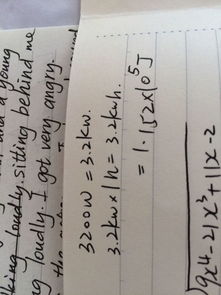 and a young
king loudly. sitting behind me
ng loudly. I got very angry.
the
3200W = 3.2kw.
3.2kw×1h = 3.2kwh.
= 1.152×10⁵J
9x4-21x³+11x-2